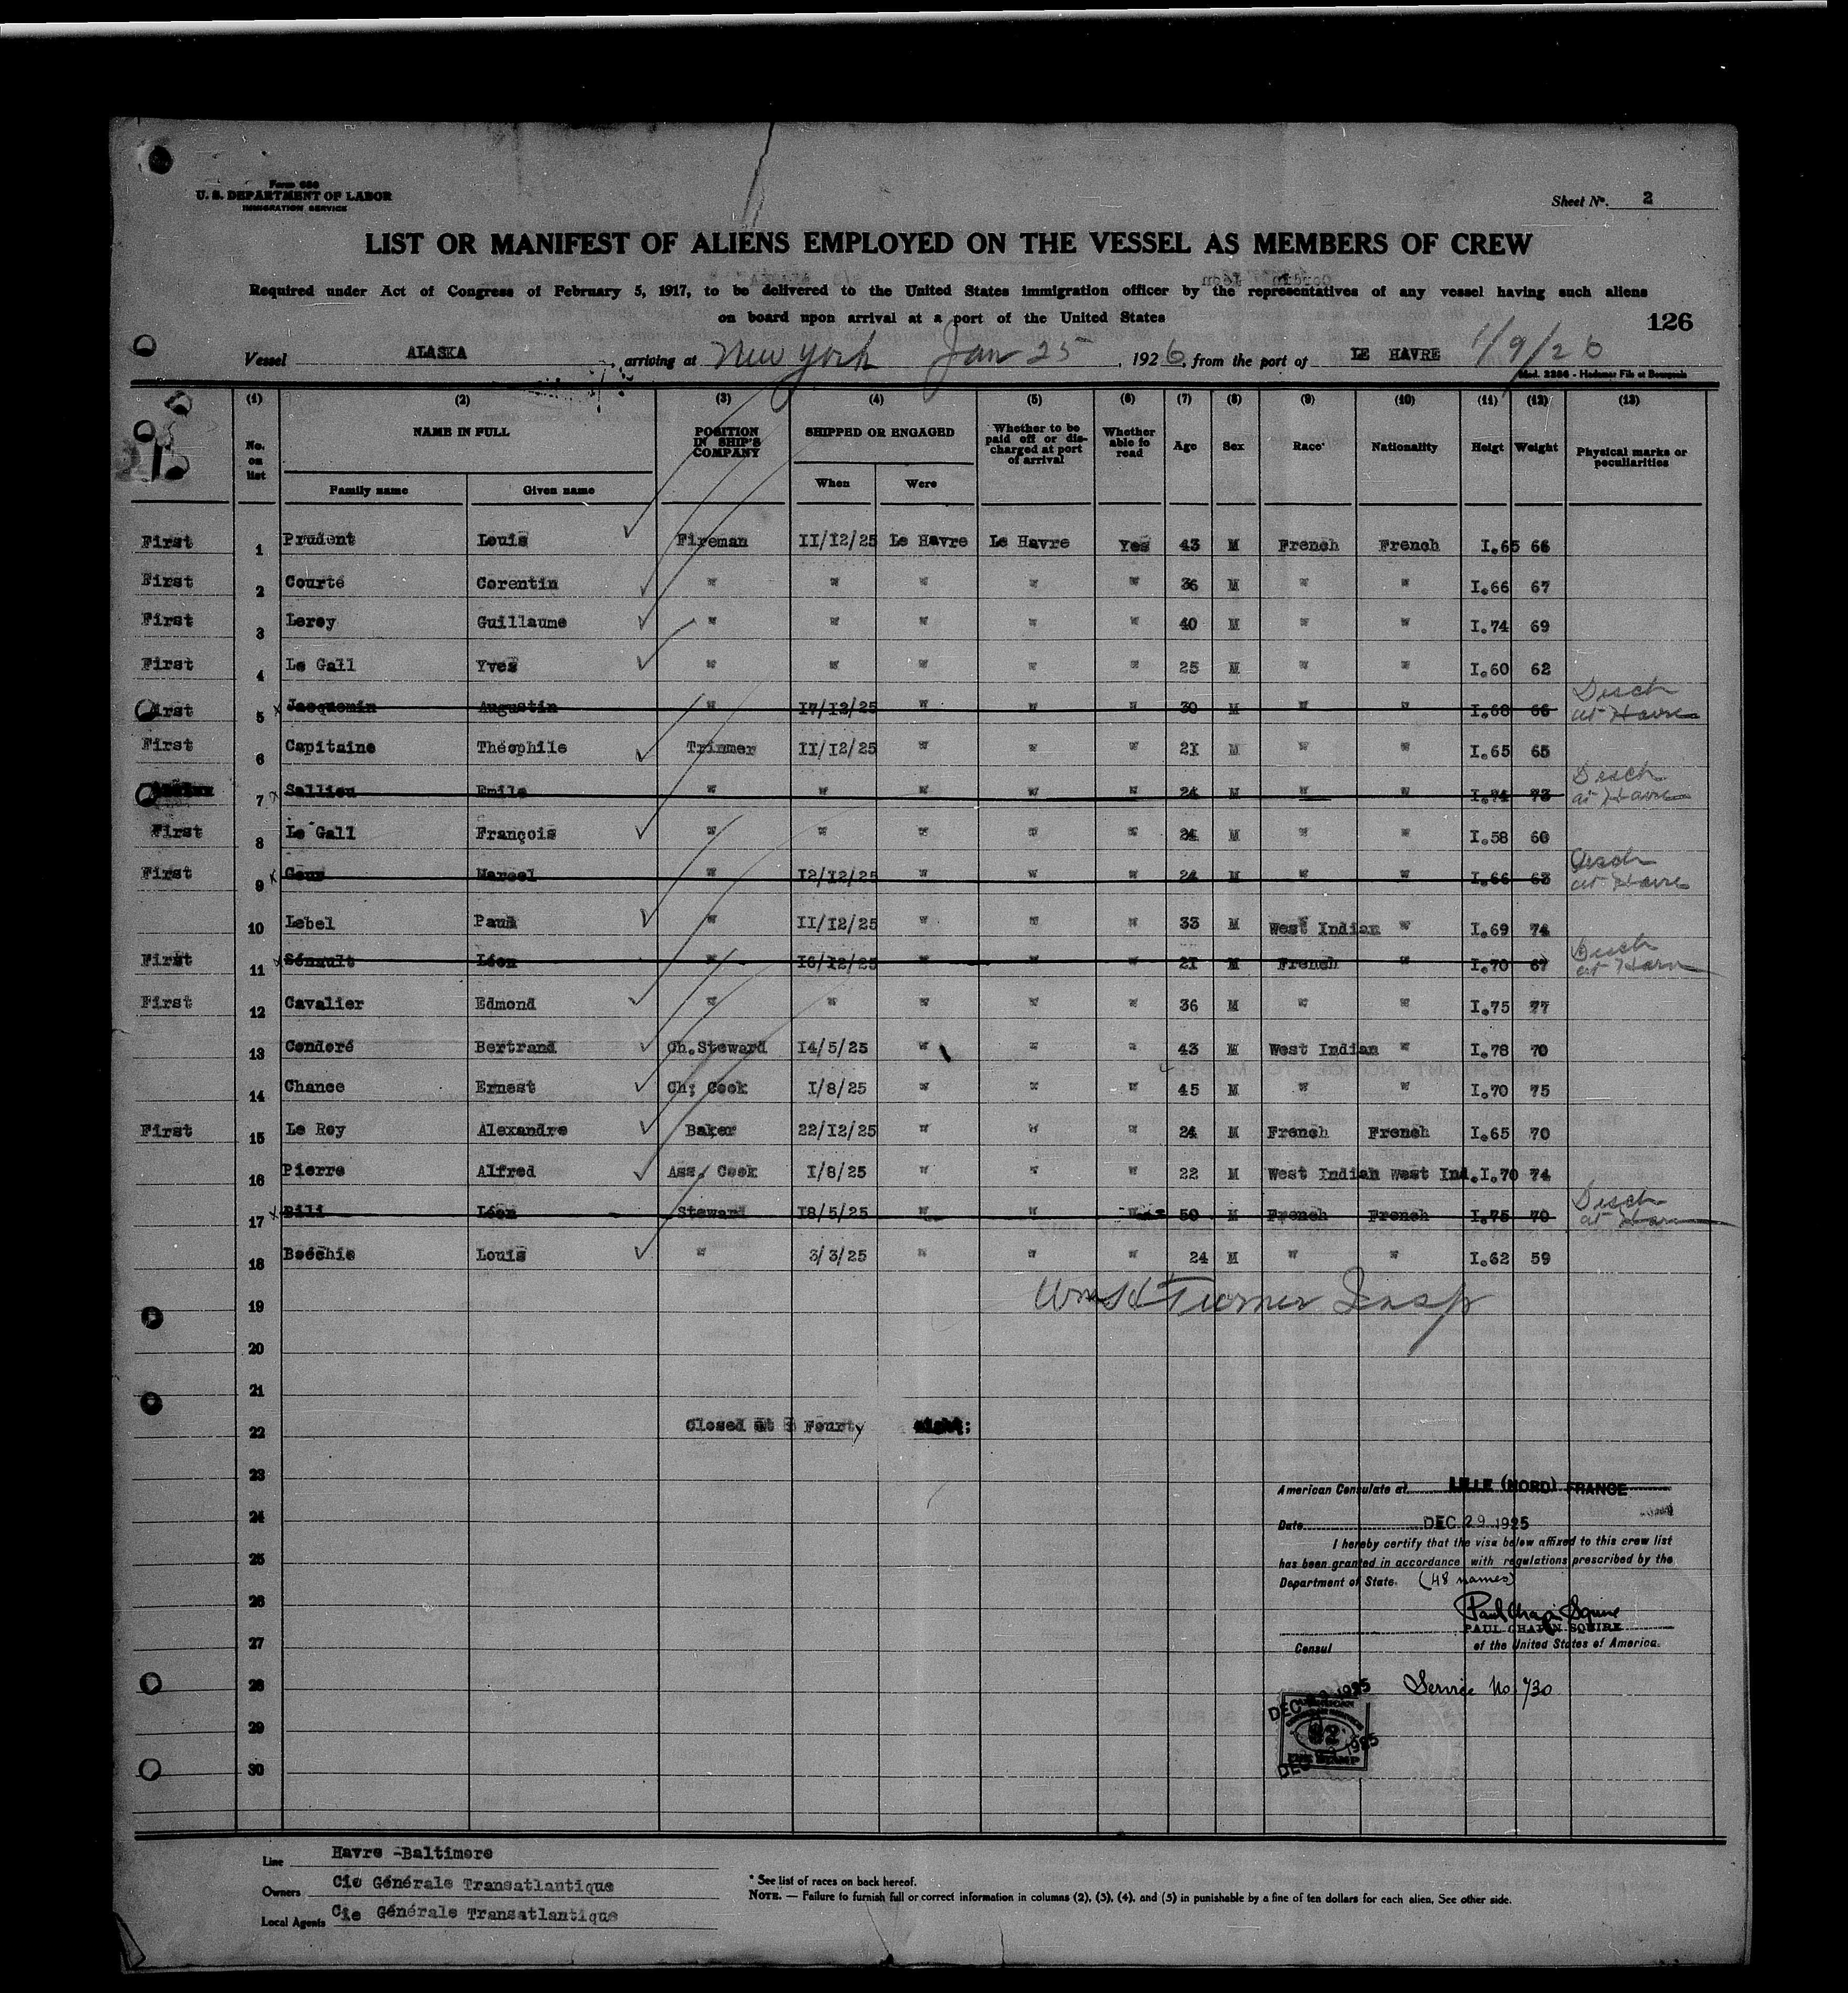 Form 680
U. S. DEPARTMENT OF LABOR
IMMIGRATION SERVICE
Sheet No. 2
LIST OR MANIFEST OF ALIENS EMPLOYED ON THE VESSEL AS MEMBERS OF CREW
Required under Act of Congress of February 5, 1917, to be delivered to the United States immigration officer by the representatives of any vessel having such aliens
on board upon arrival at a port of the United States
126
Vessel ALASKA, arriving at New York Jan 25, 1926, from the port of LE HAVRE 1/9/26
Mod. 2386 - Hademar Fils et Bourgeois
(1) (2) (3) (4) (5) (6) (7) (8) (9) (10) (11) (12) (13)
No. on list NAME IN FULL POSITION IN SHIP'S COMPANY SHIPPED OR ENGAGED Whether to be paid off or discharged at port of arrival Whether able to read Age Sex Race* Nationality Heigt Weight Physical marks or peculiarities
Family name Given name When Were
First 1 Prudent Louis Fireman II/I2/25 Le Havre Le Havre Yes 43 M French French I.65 66
First 2 Courté Corentin " " " " " 36 M " " I.66 67
First 3 Leroy Guillaume " " " " " 40 M " " I.74 69
First 4 Le Gall Yves " " " " " 25 M " " I.60 62
First 5 x Jacquemin Augustin " I7/I2/25 " " " 30 M " " I.68 66 Disch at Havre
First 6 Capitaine Théophile Trimmer II/I2/25 " " " 2I M " " I.65 65
7 x Salliou Emile " " " " " 24 M " " I.74 73 Disch at Havre
First 8 Le Gall François " " " " " 24 M " " I.58 60
First 9 x Marcel " I2/I2/25 " " " 24 M " " I.66 63 Disch at Havre
10 Lebel Paul " II/I2/25 " " " 33 M West Indian " I.69 74
First 11 x Sénault Léon " I6/I2/25 " " " 2I M French " I.70 67 Disch at Havre
First 12 Cavalier Edmond " " " " " 36 M " " I.75 77
13 Condoré Bertrand Ch.Steward I4/5/25 " " " 43 M West Indian " I.78 70
14 Chance Ernest Ch; Cook I/8/25 " " " 45 M " " I.70 75
First 15 Le Roy Alexandre Baker 22/I2/25 " " " 24 M French French I.65 70
16 Pierre Alfred Ass. Cook I/8/25 " " " 22 M West Indian West Ind. I.70 74
17 x Bili Léon Steward I8/5/25 " " " 50 M French French I.75 70 Disch at Havre
18 Boéchie Louis " 3/3/25 " " " 24 M " " I.62 59
19 Turner Insp
20
21
22 Closed at Fourty eight;
23
24
25
26
27
28
29
30
American Consulate at LILLE (NORD) FRANCE
Date DEC 29 1925
I hereby certify that the visa below affixed to this crew list
has been granted in accordance with regulations prescribed by the
Department of State. (48 names)
Paul Chapin Squire
PAUL CHAPIN SQUIRE
Consul of the United States of America.
Service No. 730
DEC 29 1925
AMERICAN
$2
FEE STAMP
DEC 1925
Line Havre -Baltimore
Owners Cie Générale Transatlantique
Local Agents Cie Générale Transatlantique
* See list of races on back hereof.
NOTE. — Failure to furnish full or correct information in columns (2), (3), (4), and (5) in punishable by a fine of ten dollars for each alien. See other side.